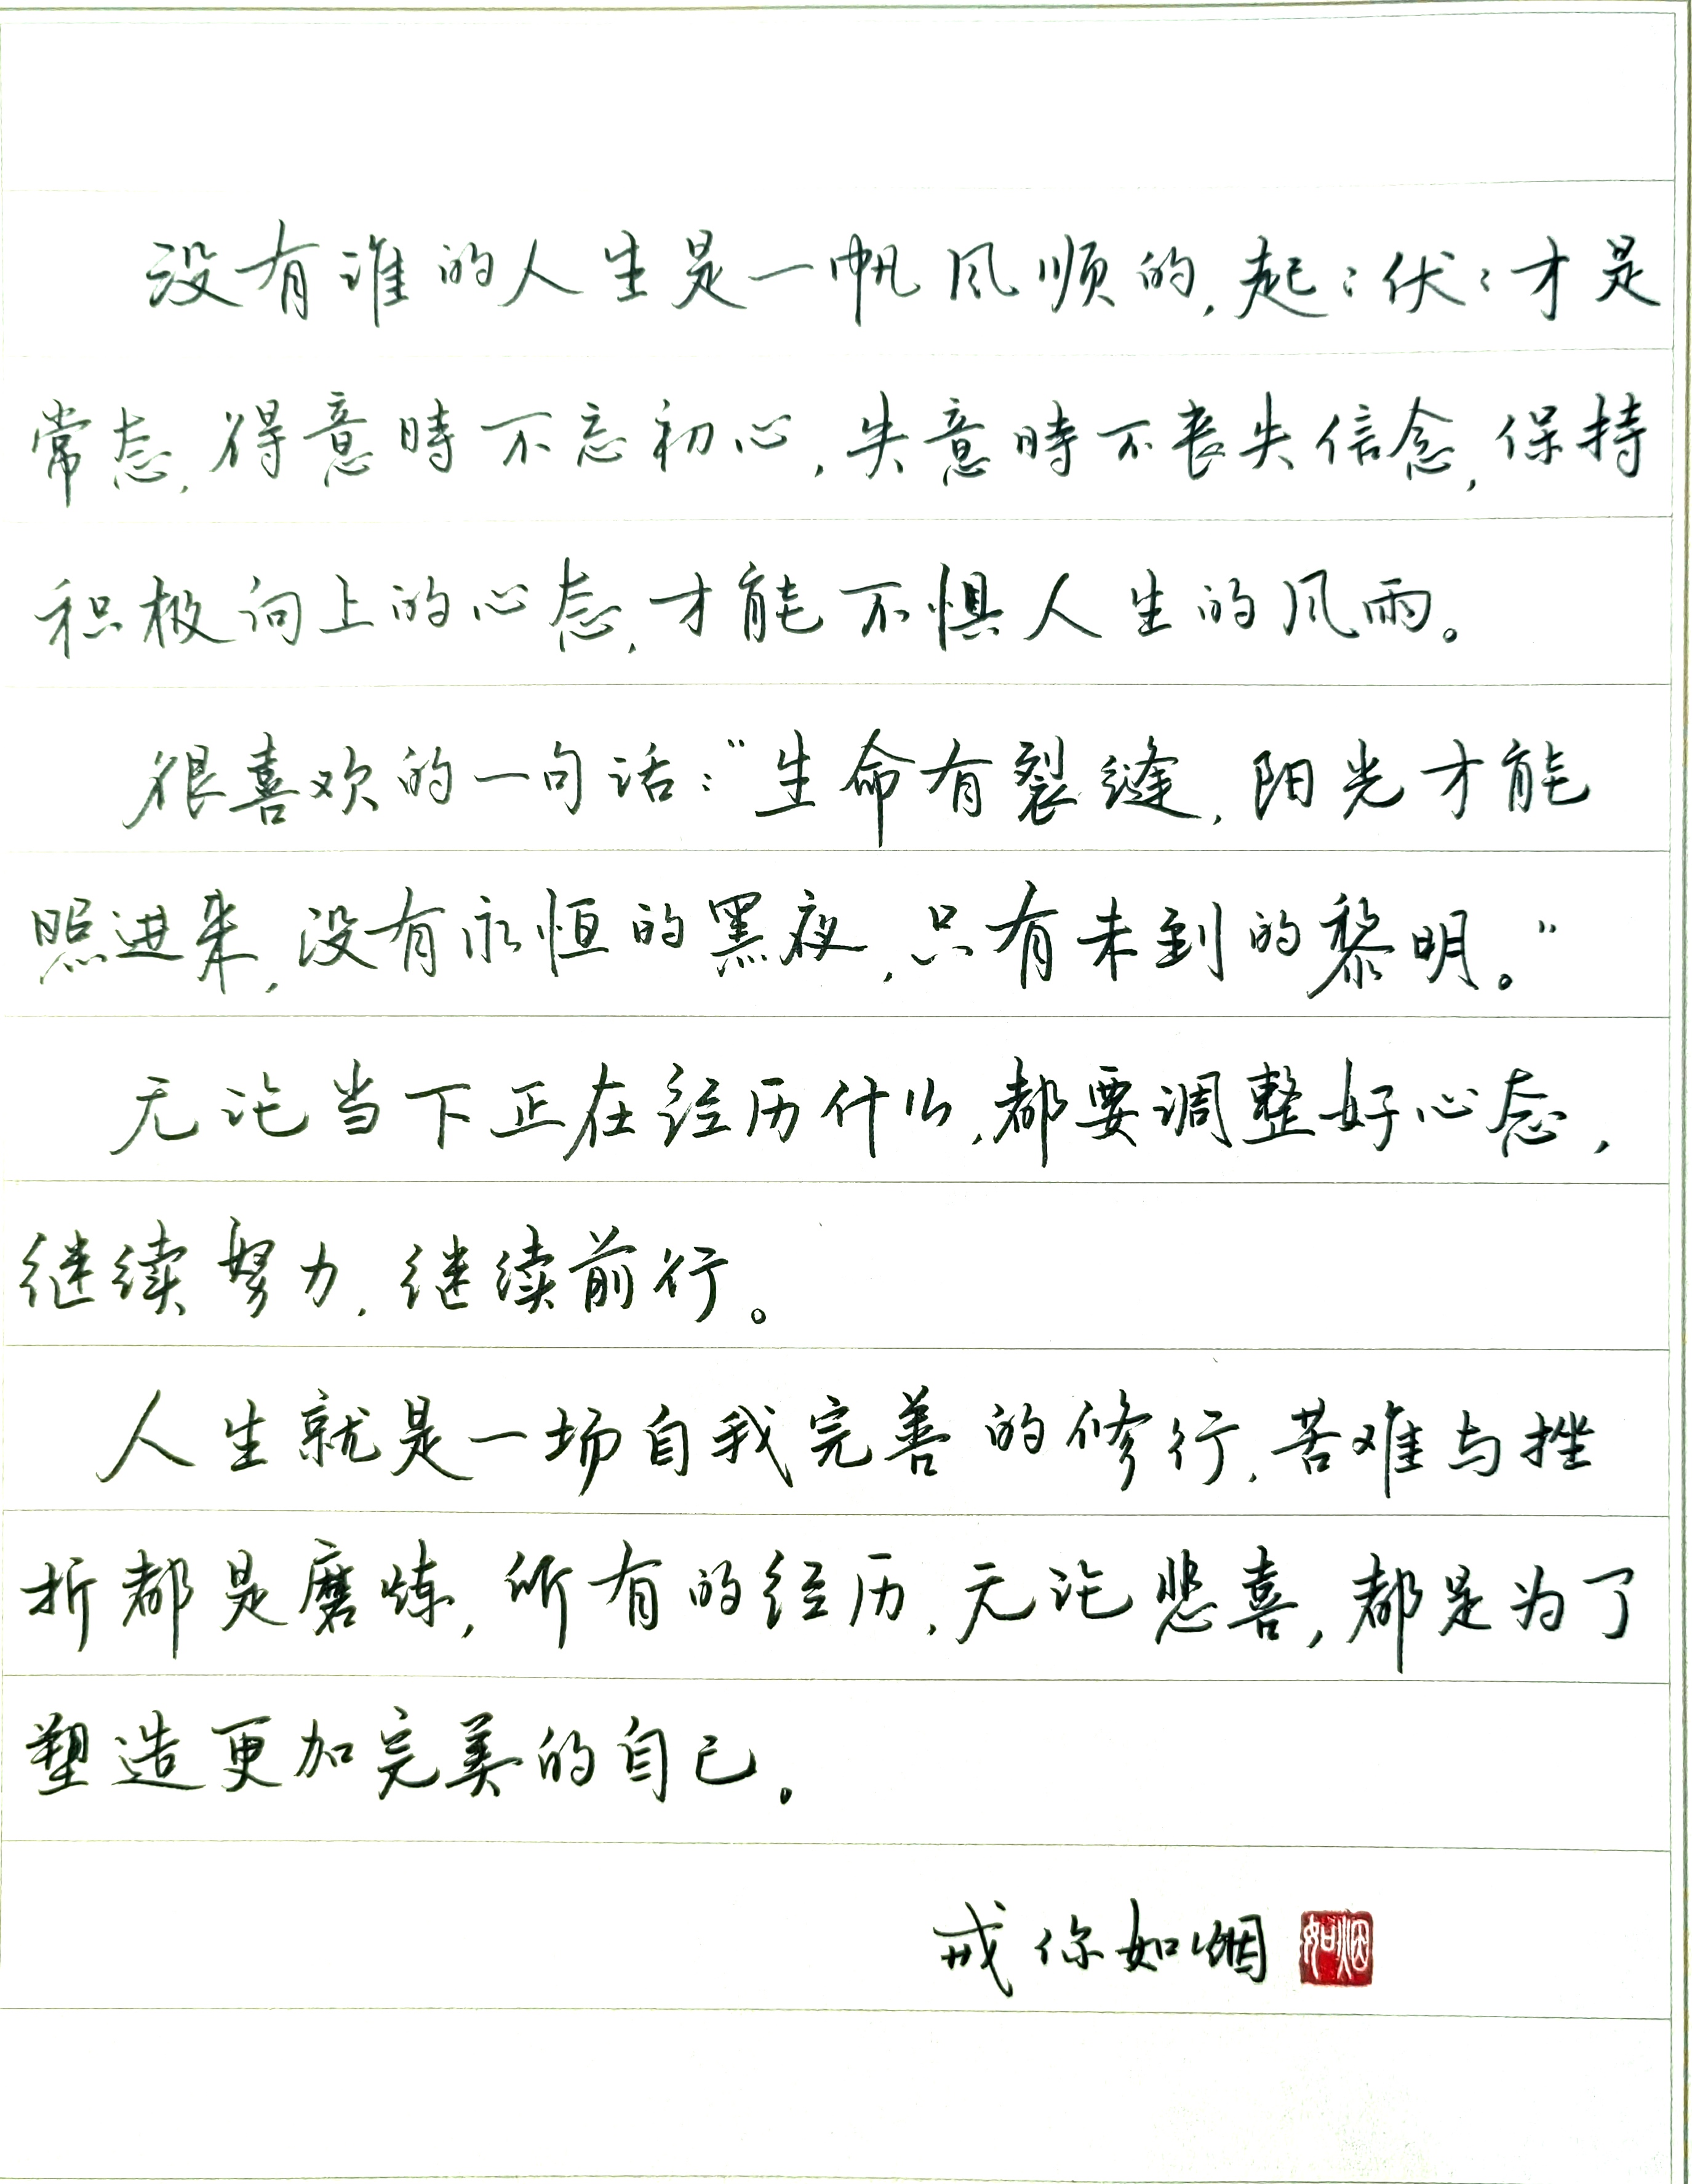 没有谁的人生是一帆风顺的,起:伏:才是
常态,得意時不忘初心,失意時不丧失信念,保持
积极向上的心态,才能不惧人生的风雨。
很喜欢的一句话:“生命有裂缝,阳光才能
照进来,没有永恒的黑夜,只有未到的黎明。”
无论当下正在经历什么,都要调整好心态,
继续努力,继续前行。
人生就是一场自我完善的修行,苦难与挫
折都是磨炼,所有的经历,无论悲喜,都是为了
塑造更加完美的自己。
戒你如烟 如烟